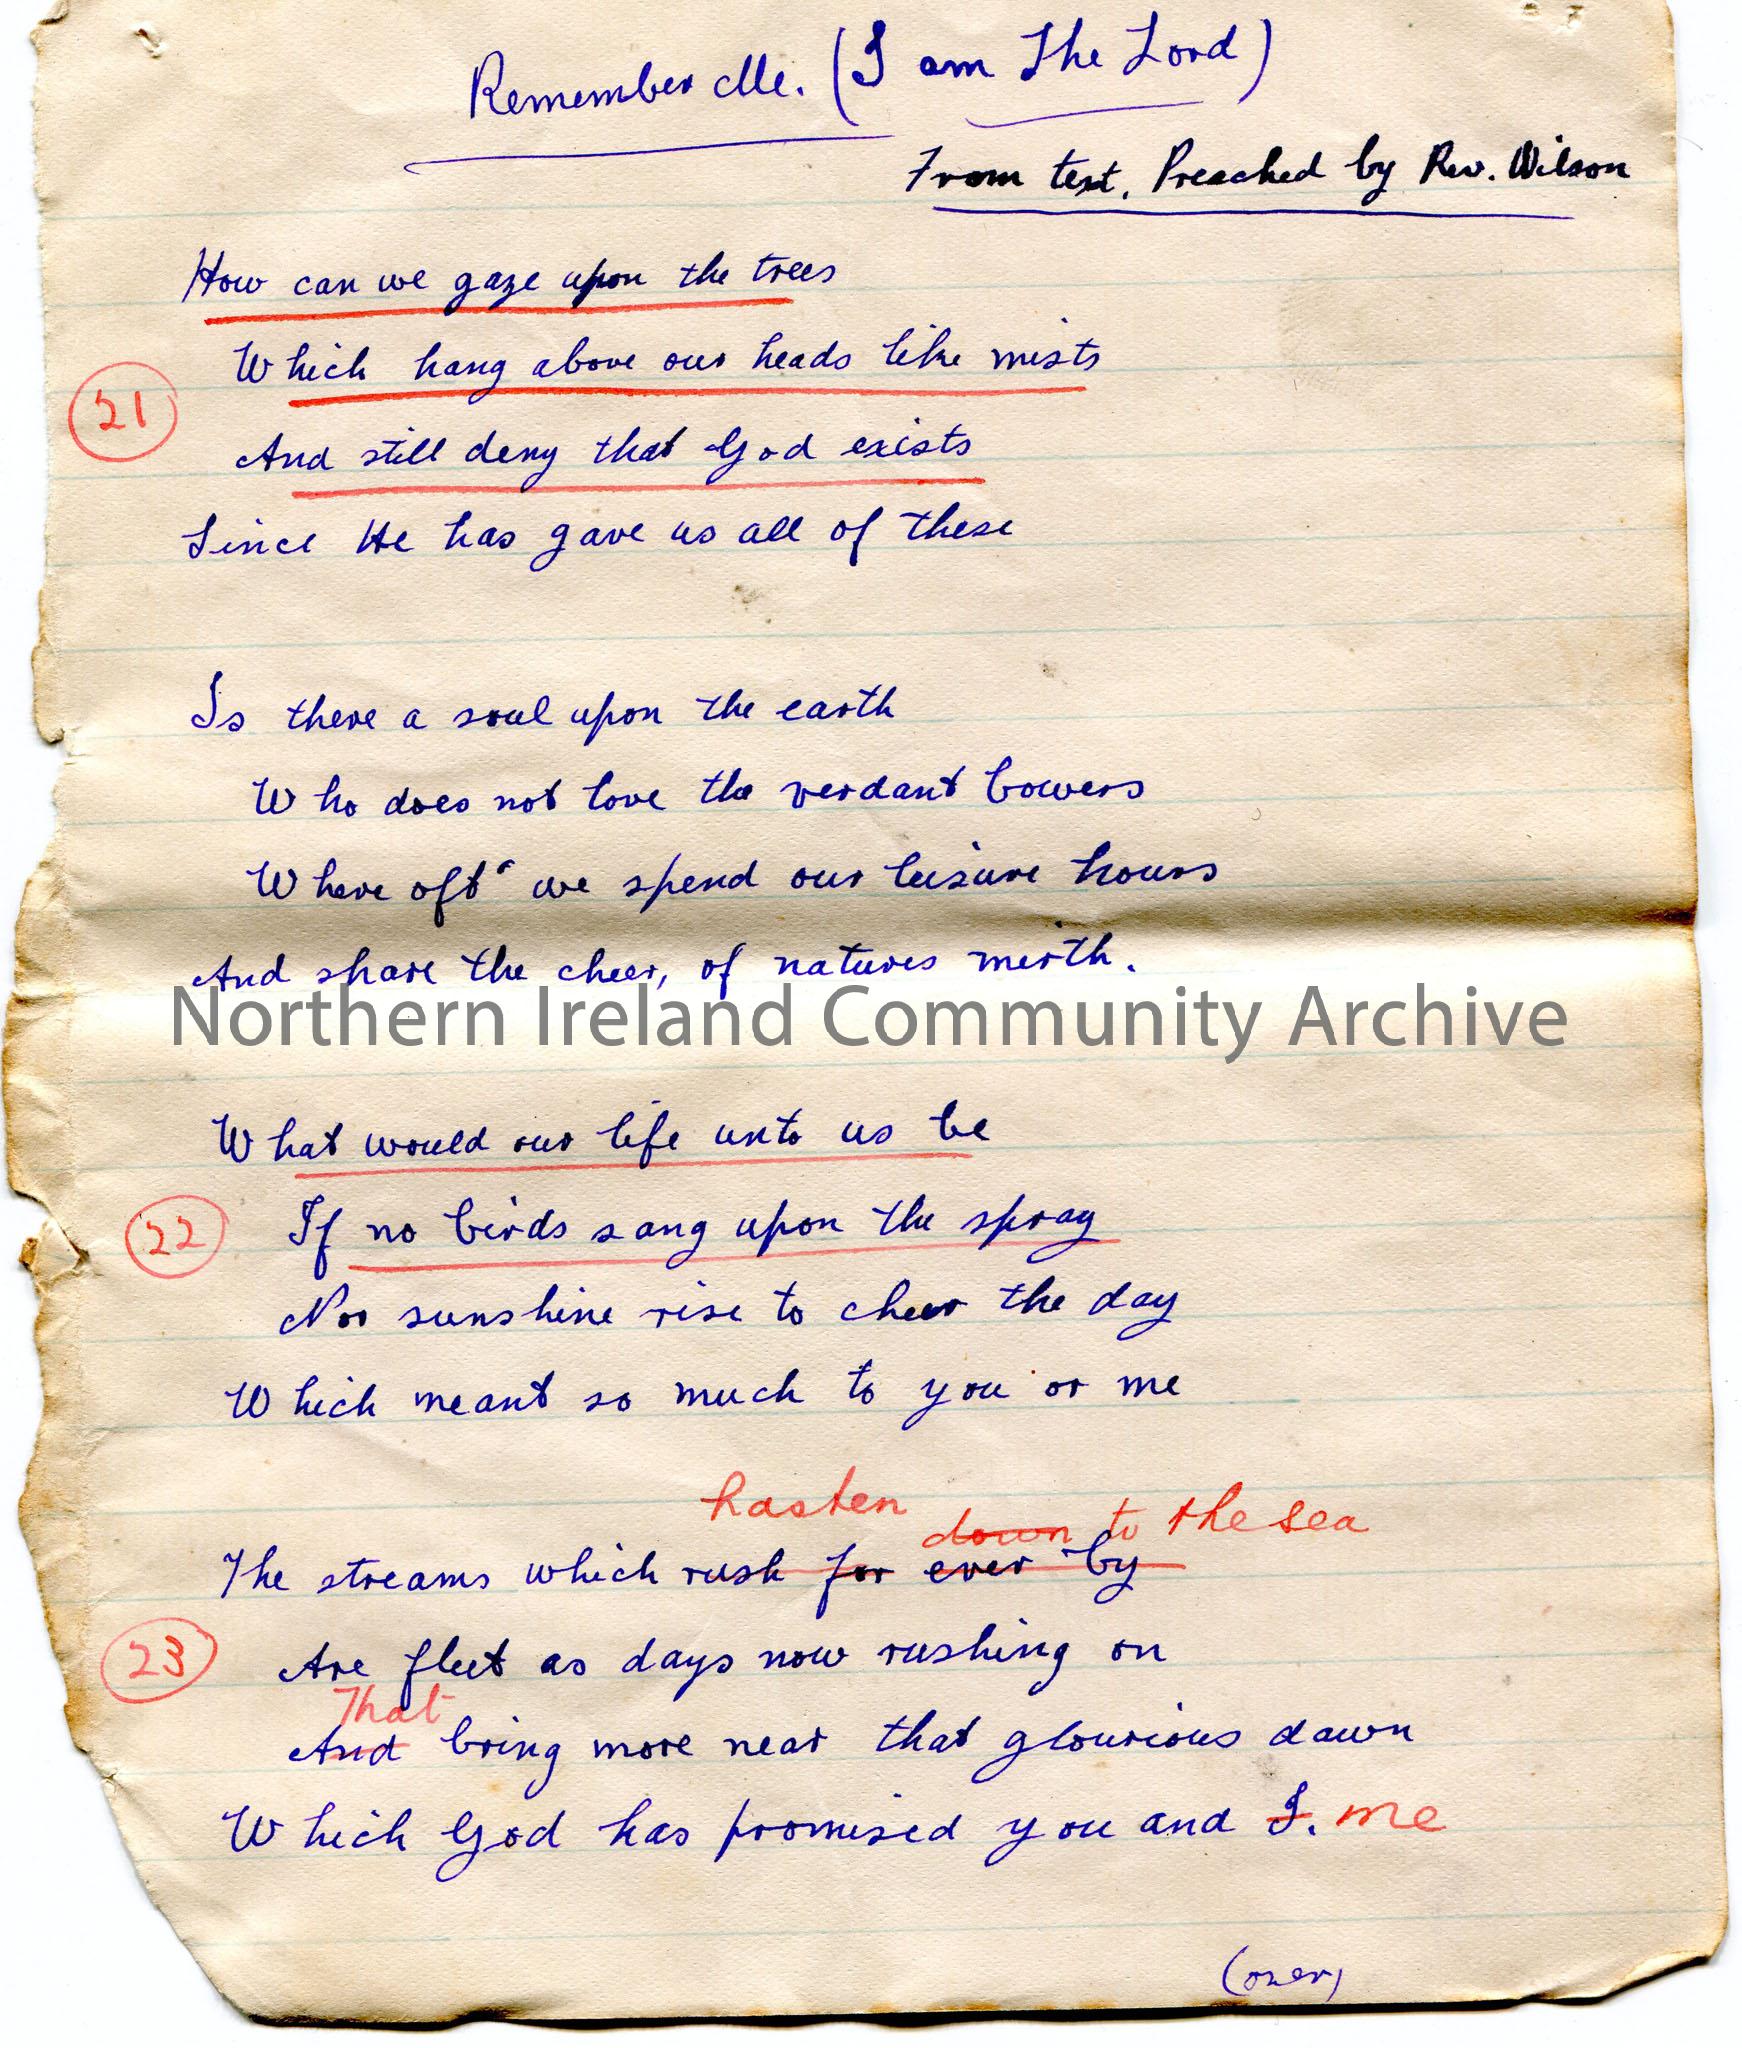 Remember Me. (I am The Lord)
From text. Preached by Rev. Wilson
How can we gaze upon the trees
Which hang above our heads like mists
21
And still deny that God exists
Since He has gave us all of these
Is there a soul upon the earth
Who does not love the verdant bowers
Where oft' we spend our leisure hours
And share the cheer, of natures mirth.
Northern Ireland Community Archive
What would our life unto us be
22
If no birds sang upon the spray
Nor sunshine rise to cheer the day
Which meant so much to you or me
hasten down to the sea
The streams which rush for ever by
23
Are fleet as days now rushing on
That
And bring more near that glourious dawn
Which God has promised you and I. me
(over)